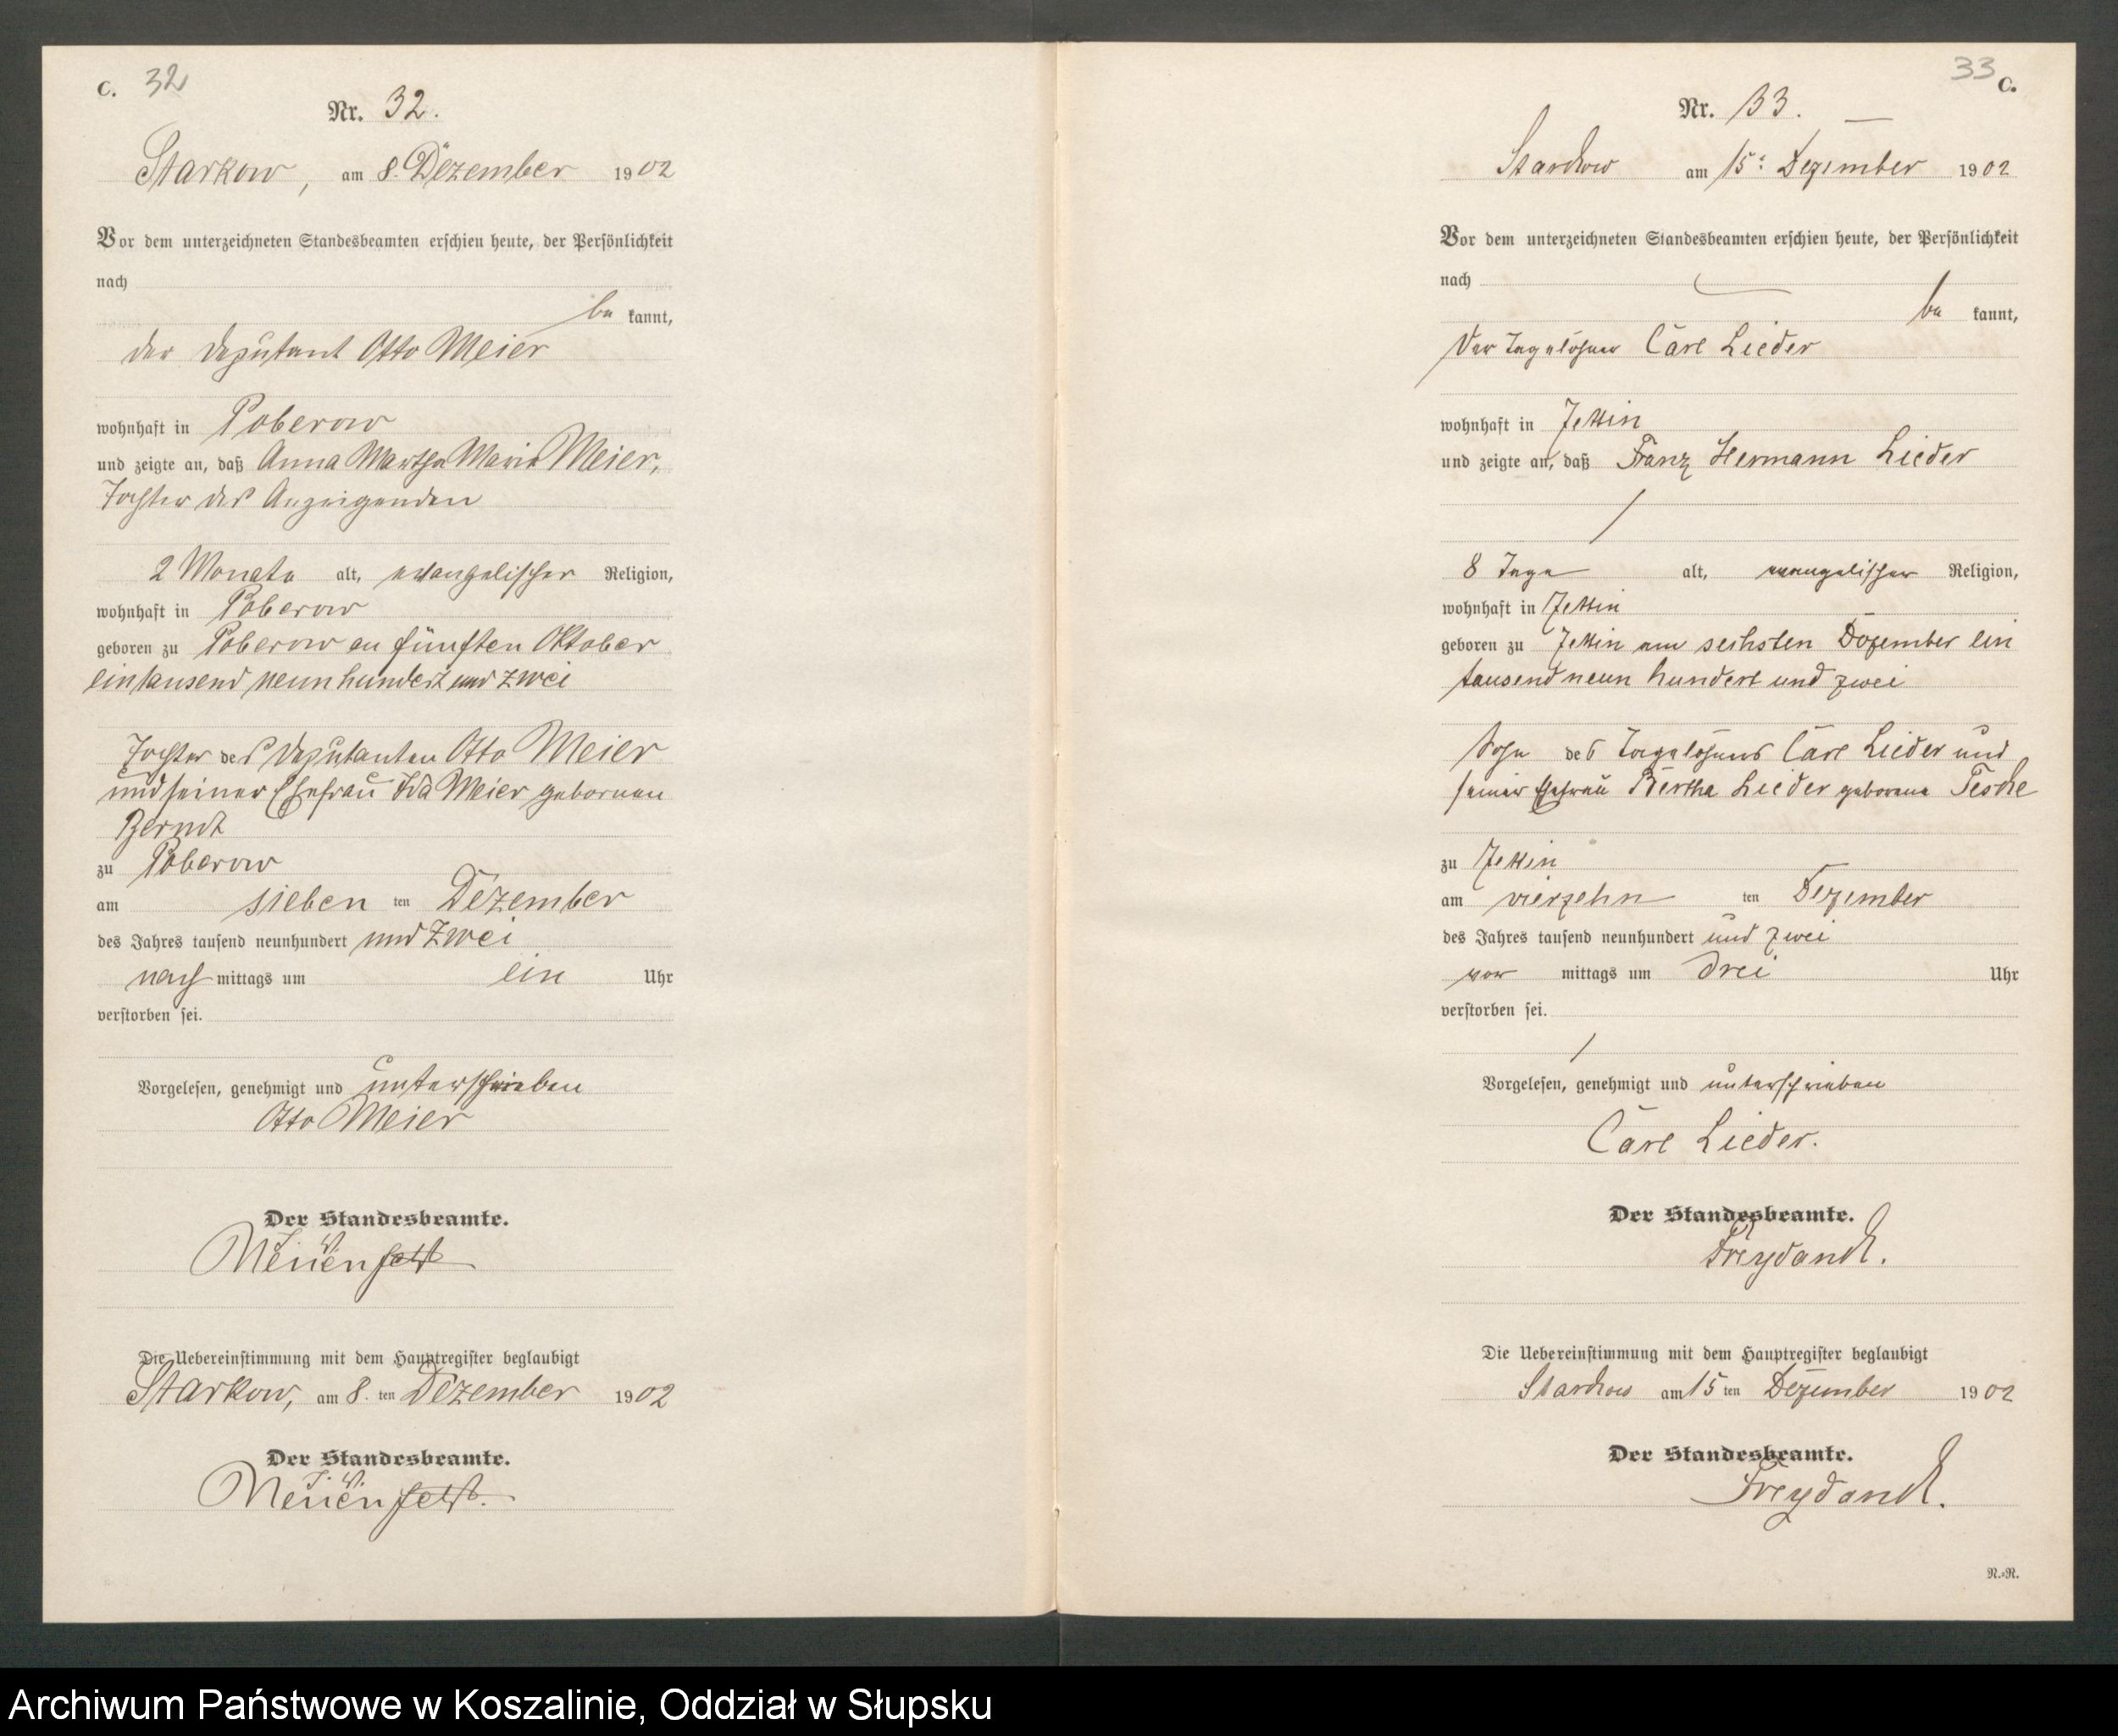 C. 32
Nr. 32.
Starkow, am 8. Dezember 1902
Vor dem unterzeichneten Standesbeamten erschien heute, der Persönlichkeit
nach
be kannt,
der Deputant Otto Meier
wohnhaft in Poberow
und zeigte an, daß Anna Martha Maria Meier,
Tochter des Anzeigenden
2 Monate alt, evangelischer Religion,
wohnhaft in Poberow
geboren zu Poberow am fünften Oktober
eintausend neunhundert und zwei
Tochter des Deputanten Otto Meier
und seiner Ehefrau Ida Meier gebornen
Berndt
zu Poberow
am sieben ten Dezember
des Jahres tausend neunhundert und zwei
nach mittags um ein Uhr
verstorben sei.
Vorgelesen, genehmigt und unterschrieben
Otto Meier
Der Standesbeamte.
J. V.
Neuenfeldt
Die Uebereinstimmung mit dem Hauptregister beglaubigt
Starkow, am 8. ten Dezember 1902
Der Standesbeamte.
J. V.
Neuenfeldt.
33 C.
Nr. 33.
Starkow am 15. Dezember 1902
Vor dem unterzeichneten Standesbeamten erschien heute, der Persönlichkeit
nach
be kannt,
der Tagelöhner Carl Lieder
wohnhaft in Jettin
und zeigte an, daß Franz Hermann Lieder
8 Tage alt, evangelischer Religion,
wohnhaft in Jettin
geboren zu Jettin am sechsten Dezember ein
tausend neun hundert und zwei
Sohn des Tagelöhners Carl Lieder und
seiner Ehefrau Bertha Lieder geborene Teske
zu Jettin
am vierzehn ten Dezember
des Jahres tausend neunhundert und zwei
vor mittags um drei Uhr
verstorben sei.
Vorgelesen, genehmigt und unterschrieben
Carl Lieder.
Der Standesbeamte.
Freydanck.
Die Uebereinstimmung mit dem Hauptregister beglaubigt
Starkow am 15 ten Dezember 1902
Der Standesbeamte.
Freydanck.
N.-R.
Archiwum Państwowe w Koszalinie, Oddział w Słupsku